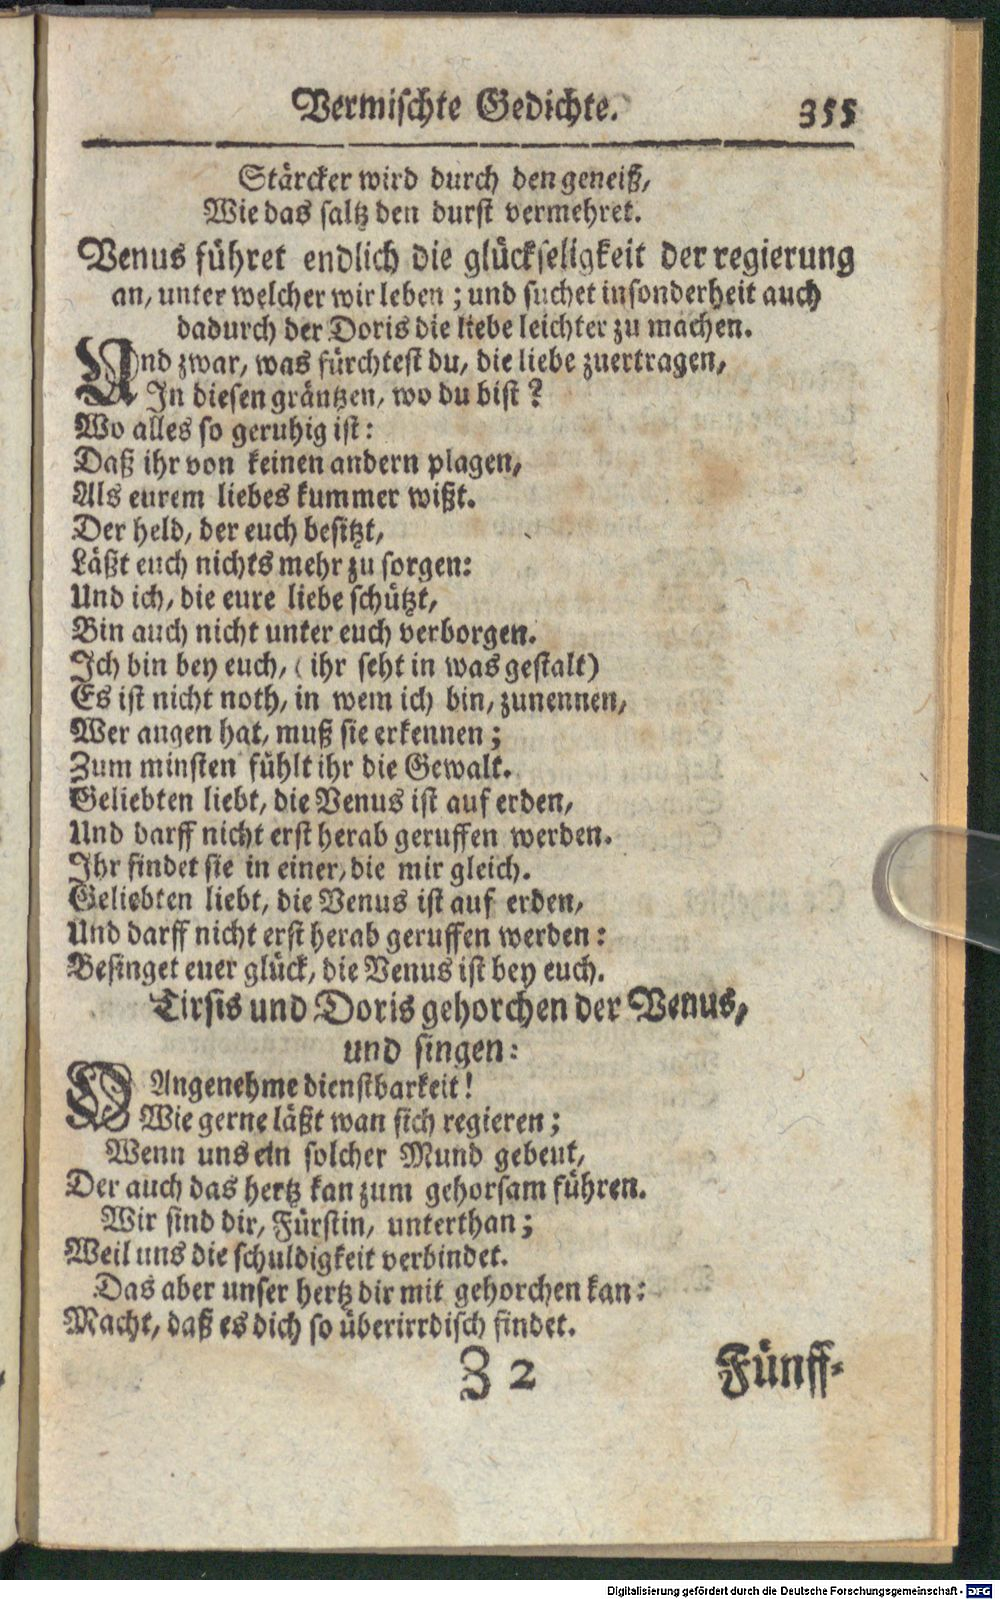 Vermischte Gedichte. 355
Stärcker wird durch den geneiß,
Wie das saltz den durst vermehret.
Venus führet endlich die glückseligkeit der regierung
an, unter welcher wir leben; und suchet insonderheit auch
dadurch der Doris die liebe leichter zu machen.
Und zwar, was fürchtest du, die liebe zuertragen,
In diesen gräntzen, wo du bist?
Wo alles so geruhig ist:
Daß ihr von keinen andern plagen,
Als eurem liebes kummer wißt.
Der held, der euch besitzt,
Läßt euch nichts mehr zu sorgen:
Und ich, die eure liebe schützt,
Bin auch nicht unter euch verborgen.
Ich bin bey euch, (ihr seht in was gestalt)
Es ist nicht noth, in wem ich bin, zunennen,
Wer augen hat, muß sie erkennen;
Zum minsten fühlt ihr die Gewalt.
Geliebten liebt, die Venus ist auf erden,
Und darff nicht erst herab geruffen werden.
Ihr findet sie in einer, die mir gleich.
Geliebten liebt, die Venus ist auf erden,
Und darff nicht erst herab geruffen werden:
Besinget euer glück, die Venus ist bey euch.
Tirsis und Doris gehorchen der Venus,
und singen:
O Angenehme dienstbarkeit!
Wie gerne läßt wan sich regieren;
Wenn uns ein solcher Mund gebeut,
Der auch das hertz kan zum gehorsam führen.
Wir sind dir, Fürstin, unterthan;
Weil uns die schuldigkeit verbindet.
Das aber unser hertz dir mit gehorchen kan:
Macht, daß es dich so überirrdisch findet.
Z 2 Fünff-
Digitalisierung gefördert durch die Deutsche Forschungsgemeinschaft - DFG